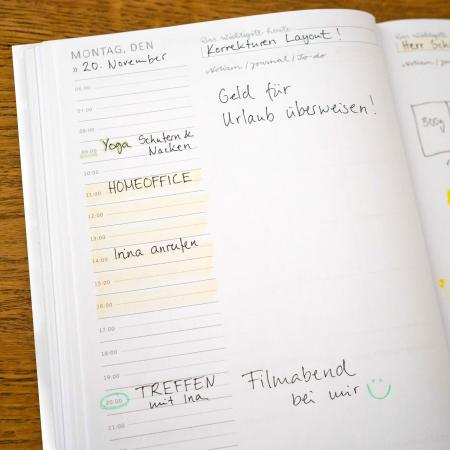 MONTAG, DEN
» 20. November
06:00
07:00
08:00
09:00 Yoga Schultern &
Nacken
10:00
11:00 HOMEOFFICE
12:00
13:00
14:00 Irina anrufen
15:00
16:00
17:00
18:00
19:00
20:00 TREFFEN
mit Ina
21:00
Das wichtigste heute
Korrekturen Layout!
Notizen / Journal / To-do
Geld für
Urlaub überweisen!
Filmabend
bei mir
Das wichtigste
Herr
Notizen / Journal
800g